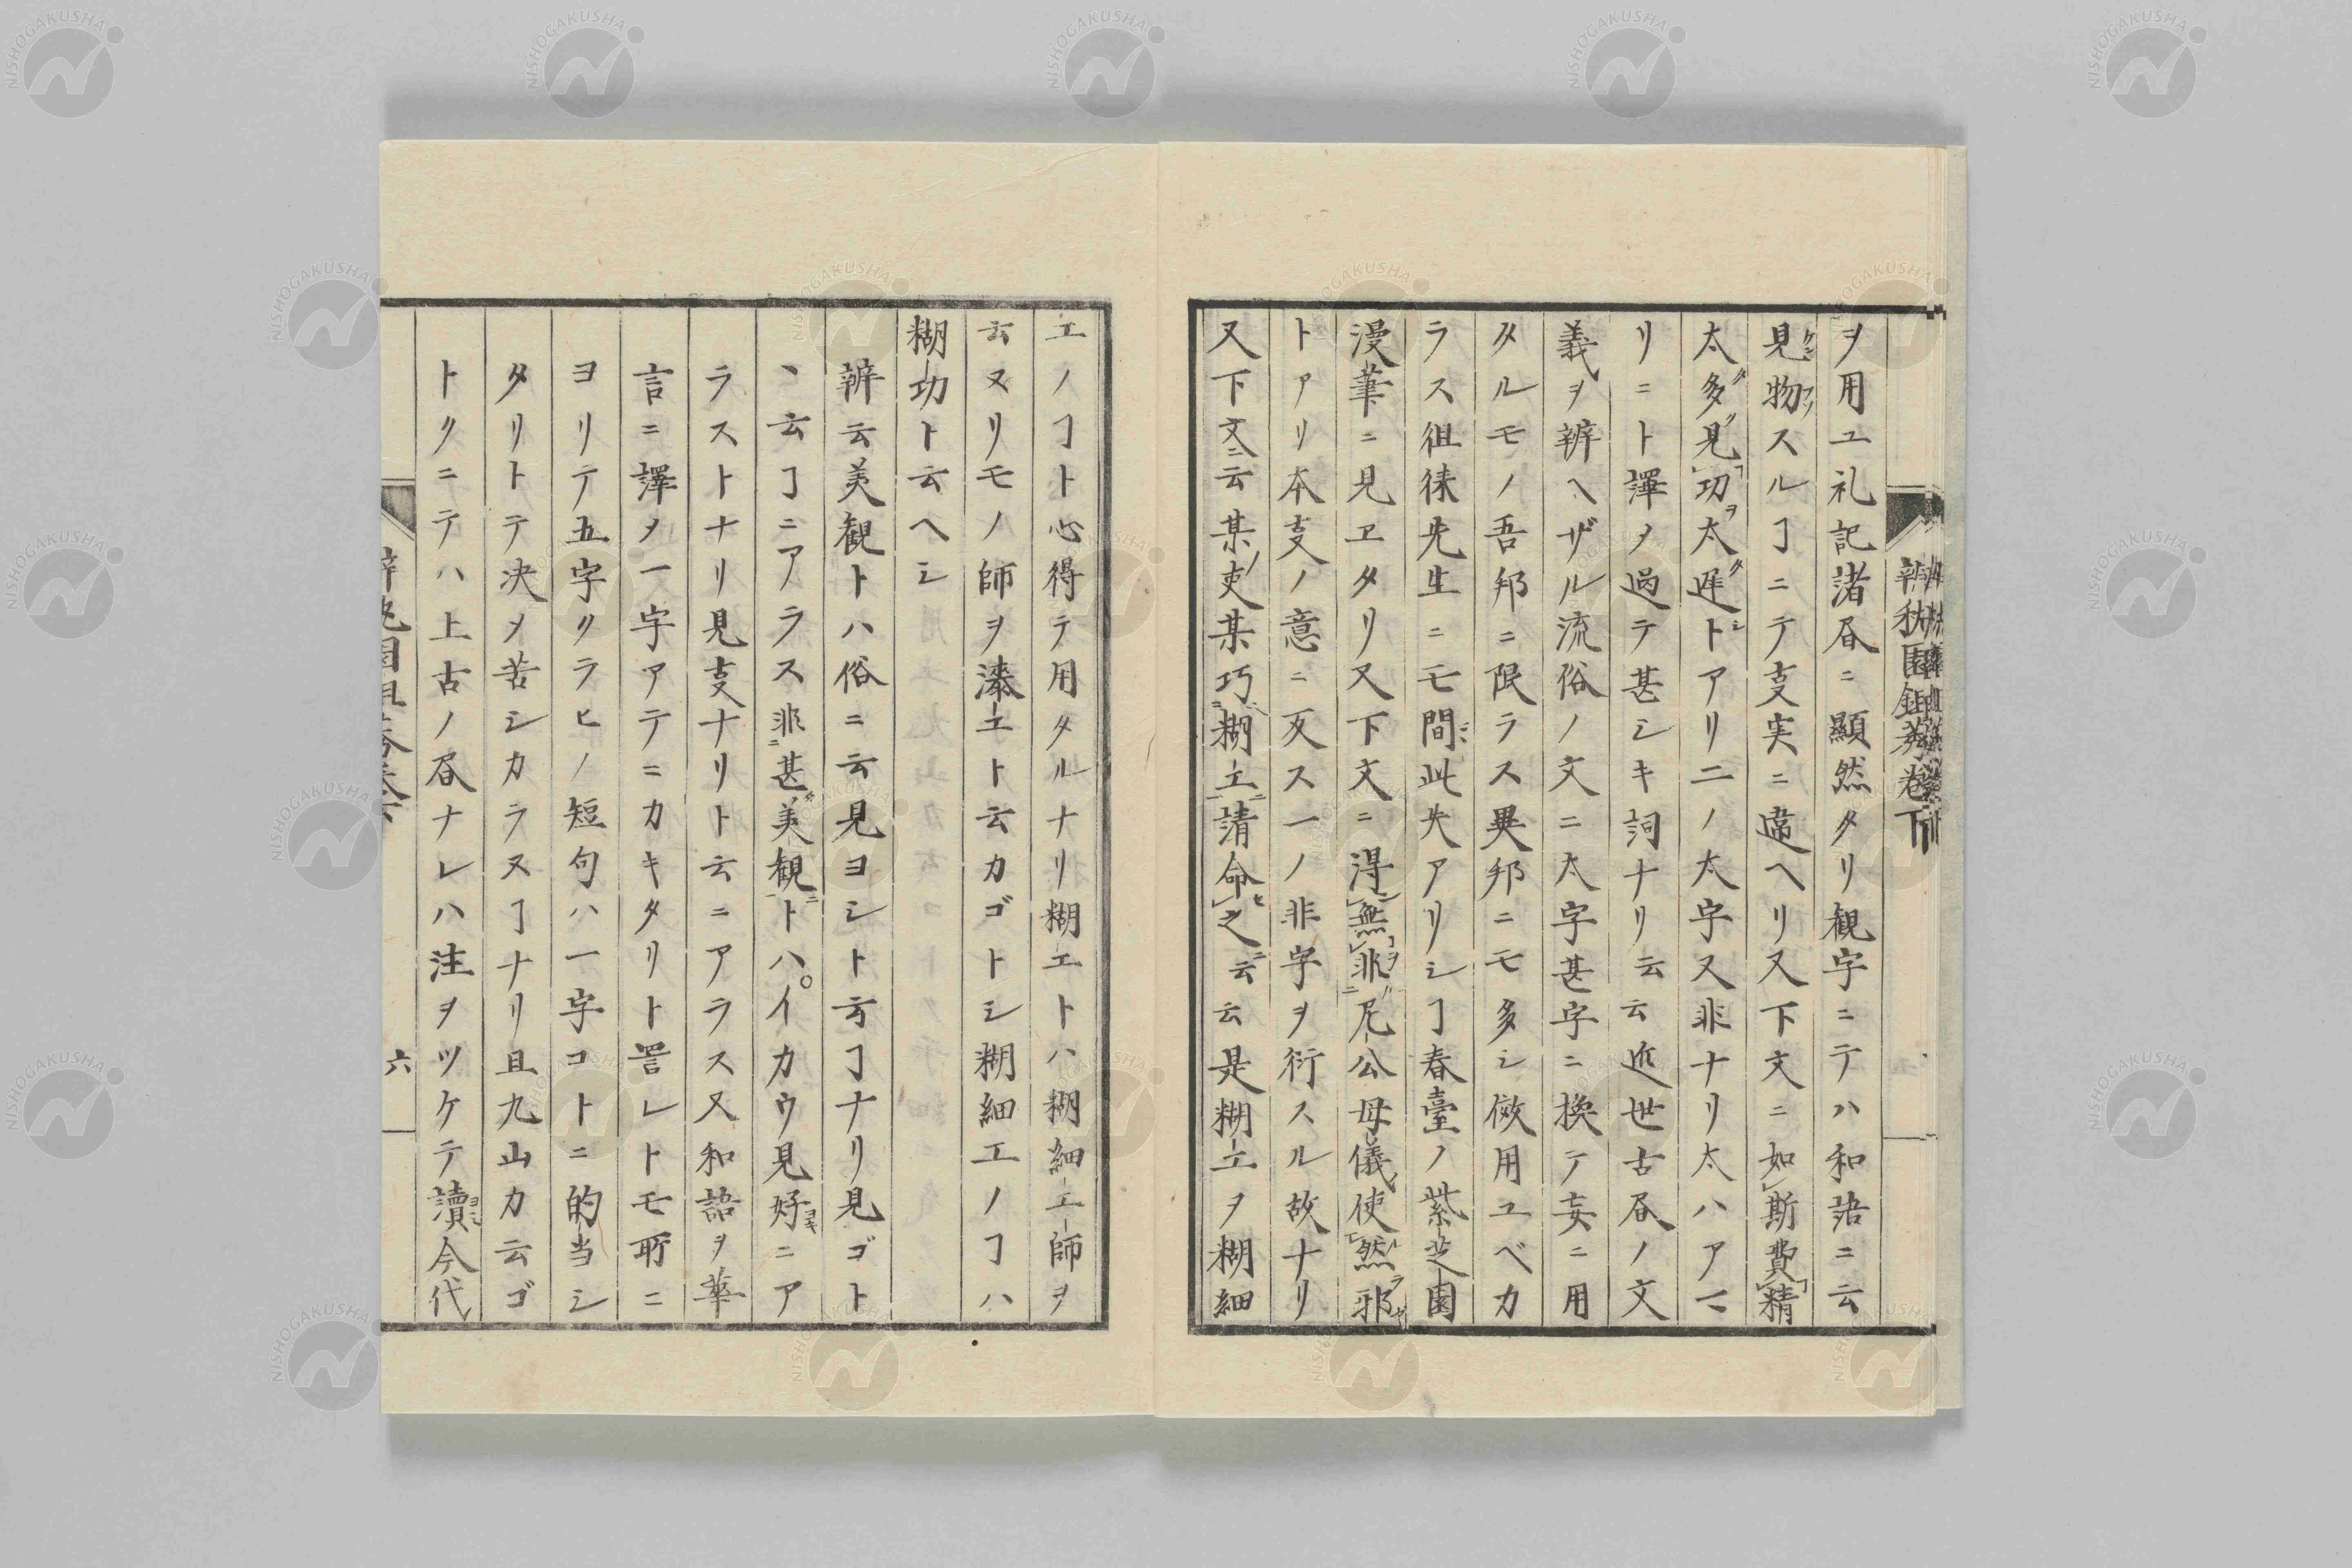 辨秇園鉏莠卷下
ヲ用ユ礼記諸㫖ニ顯然タリ観字ニテハ和語ニ云
見物スルヿニテ叓実ニ違ヘリ又下文ニ如斯費精
太多見功太遅トアリ二ノ太字又非ナリ太ハアマ
リニト譯メ過テ甚シキ詞ナリ云云近世古㫖ノ文
義ヲ辨ヘザル流俗ノ文ニ太字甚字ニ換テ妄ニ用
タルモノ吾邦ニ限ラス異邦ニモ多シ倣用ユベカ
ラス徂徕先生ニモ間此失アリシヿ春臺ノ紫芝園
漫筆ニ見ヱタリ又下文ニ得無非尼公母儀使然邪
トアリ本叓ノ意ニ反ス一ノ非字ヲ衍スル故ナリ
又下文云某吏某巧糊工請命之云云是糊工ヲ糊細
エノヿト心得テ用タルナリ糊工トハ糊細工師ヲ
云ヌリモノ師ヲ漆工ト云カゴトシ糊細工ノヿハ
糊功ト云ヘシ
辨云美観トハ俗ニ云見ヨシト云ヿナリ見ゴト
ヽ云ヿニアラス非甚美観トハイカウ見好ニア
ラストナリ見叓ナリト云ニアラス又和語ヲ華
言ニ譯メ一字アテニカキタリト詈レトモ所ニ
ヨリテ五字クラヒノ短句ハ一字コトニ的当シ
タリトテ决メ苦シカラヌヿナリ且九山カ云ゴ
トクニテハ上古ノ㫖ナレハ注ヲツケテ讀今代
六
NISHOGAKUSHA